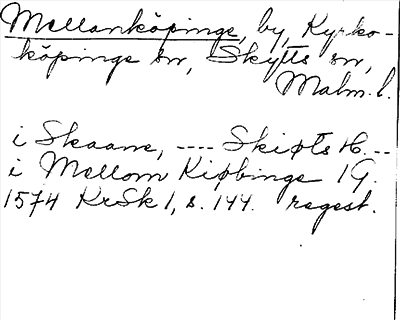 Mellanköpinge, by, Kyrko-
köpinge sn, Skytts sn,
Malm. l.
i Skaane, ---- Skipts H. --
i Mellom Kiøbinge 1 G.
1574 KrSk 1, s. 144. regest.